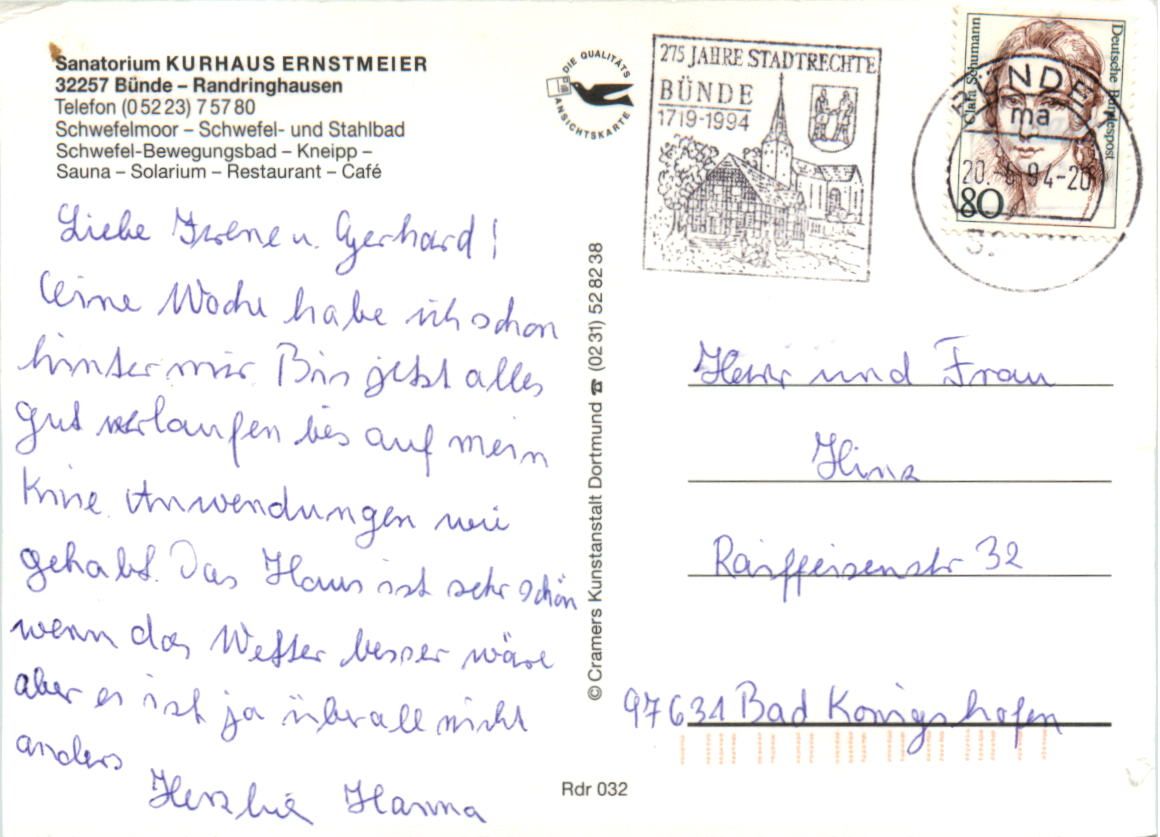 Sanatorium KURHAUS ERNSTMEIER
32257 Bünde – Randringhausen
Telefon (0 52 23) 7 57 80
Schwefelmoor – Schwefel- und Stahlbad
Schwefel-Bewegungsbad – Kneipp –
Sauna – Solarium – Restaurant – Café
Liebe Irene u. Gerhard!
Eine Woche habe ich schon
hinter mir Bis jetzt alles
gut verlaufen bis auf mein
Knie. Anwendungen wie
gehabt. Das Haus ist sehr schön
wenn das Wetter besser wäre
aber es ist ja überall nicht
anders
Hanna
DIE QUALITÄTS
ANSICHTSKARTE
© Cramers Kunstanstalt Dortmund ☎ (02 31) 52 82 38
Rdr 032
275 JAHRE STADTRECHTE
BÜNDE
1719-1994
Clara Schumann
Deutsche Bundespost
80
BÜNDE
ma
Herr und Frau
Hinz
Raiffeisenstr 32
97631 Bad Königshofen